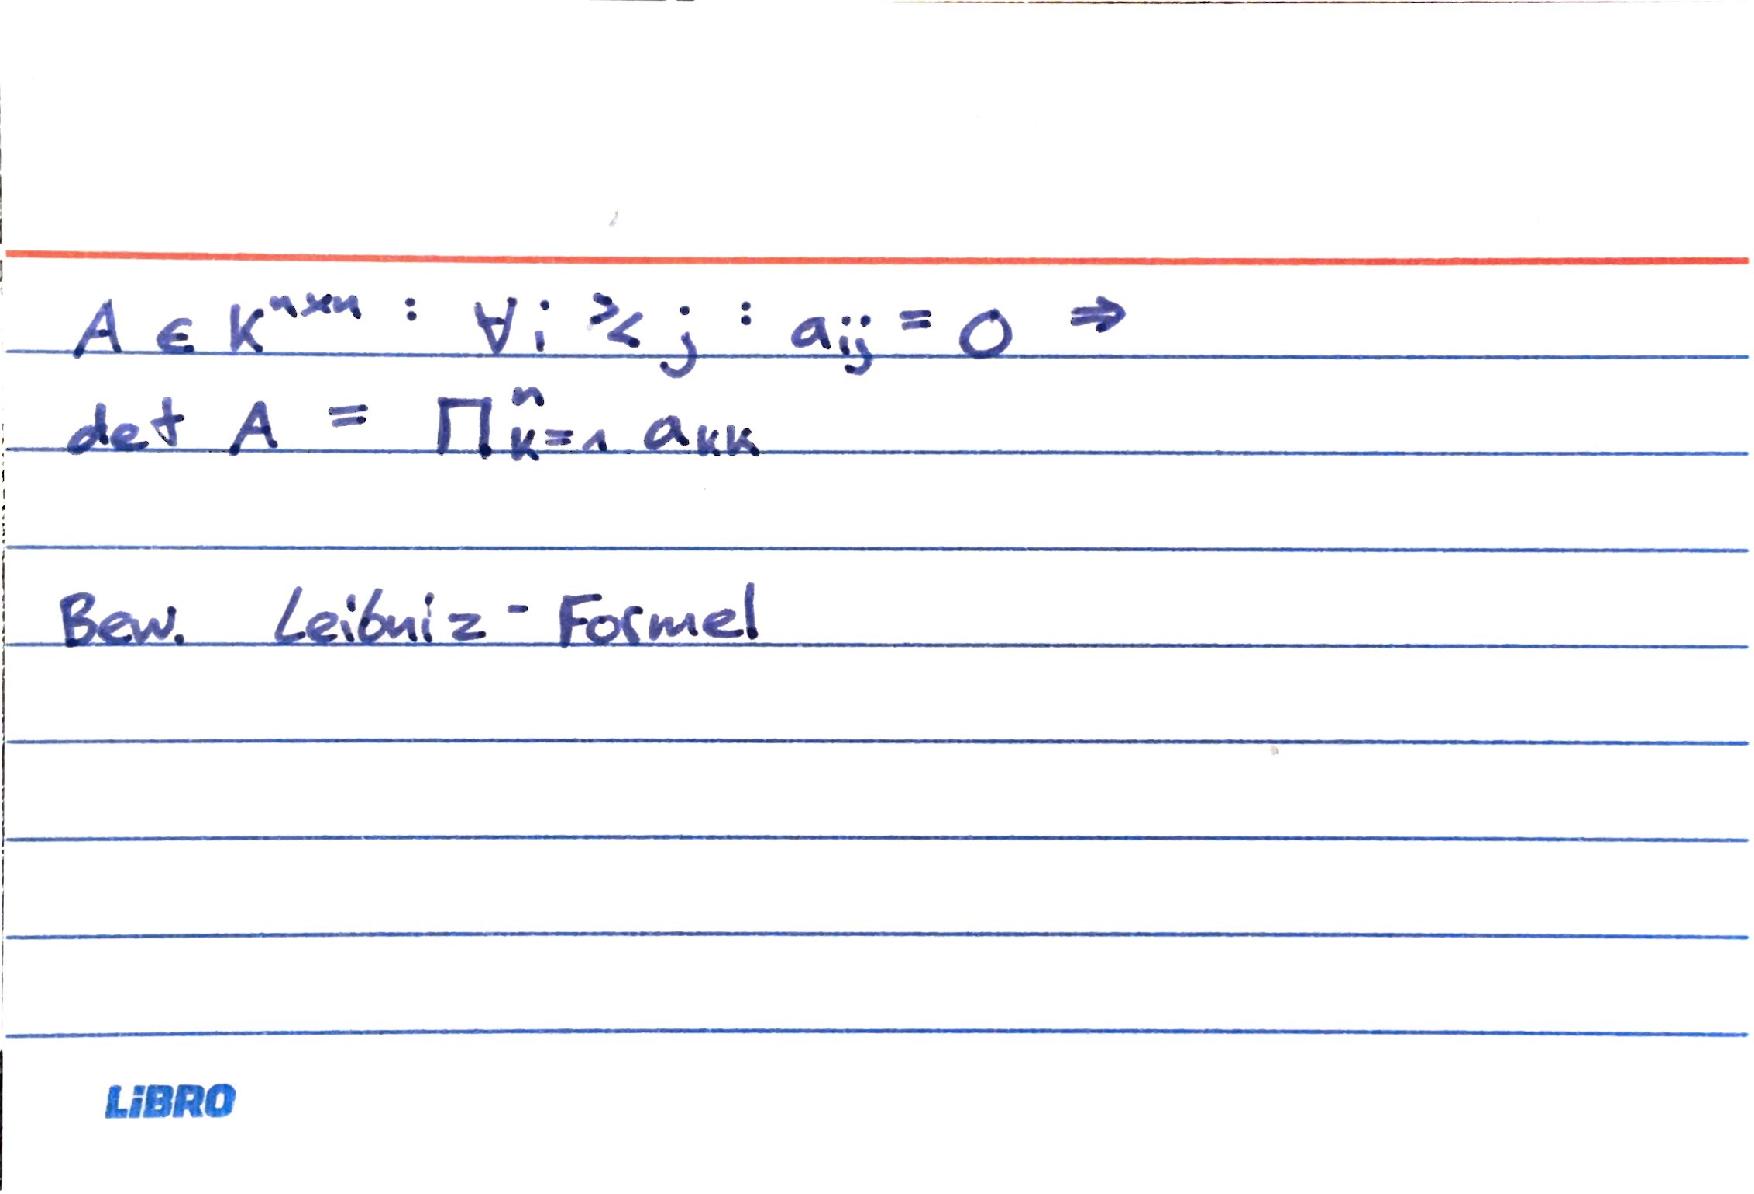 A ∈ K^{n×n} : ∀i ≷ j : a_{ij} = 0 ⇒
det A = ∏_{k=1}^{n} a_{kk}
Bew. Leibniz-Formel
LiBRO